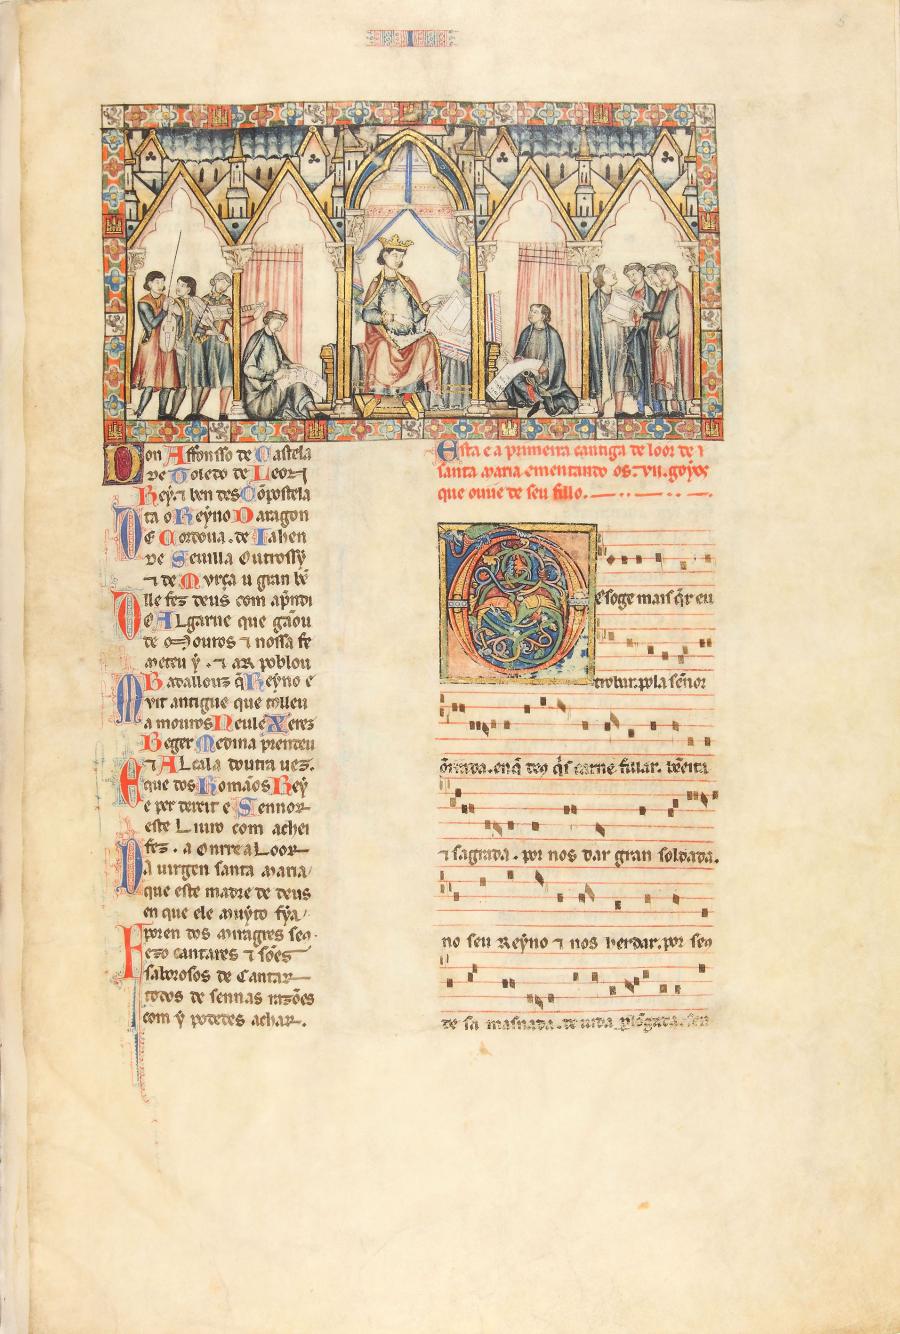 I
Don Affonsso de Castela
de Toledo de Leon
Rey ⁊ ben des Cõpostela
ta o Reyno Daragon
De Cordoua. de Iahen
de Seuilla Outrossy
⁊ de Murça u gran bẽ
lle fez deus com apndi
Do Algarue que gãou
de Mouros ⁊ nossa fe
meteu y. ⁊ ar poblou
Badallouz q̃ Reyno e
Muit antigue que tolleu
a mouros Neul e Xerez
Beger Medina prendeu
⁊ Alcala doutra uez.
E que dos Romãos Rey
e per dereit e Sennor
este Liuro com achei
fez. a Onrr e a Loor
Da uirgen santa Maria
que este madre de deus
en que ele muyto fya
poren dos miragres seus
Fezo cantares ⁊ sões
saborosos de Cantar
todos de sennas razões
com y podedes achar.
Esta e a primeira cantiga de loor de
santa maria ementando os. vii. goyos
que ouue de seu fillo.
Des oge mais q̃r eu
trobar. pola señor
õrrada. en q̃ deus q̃s carne fillar. bẽeita
⁊ sagrada. por nos dar gran soldada.
no seu Reyno ⁊ nos herdar. por seus
de sa masnada. de uida plõgada. sen